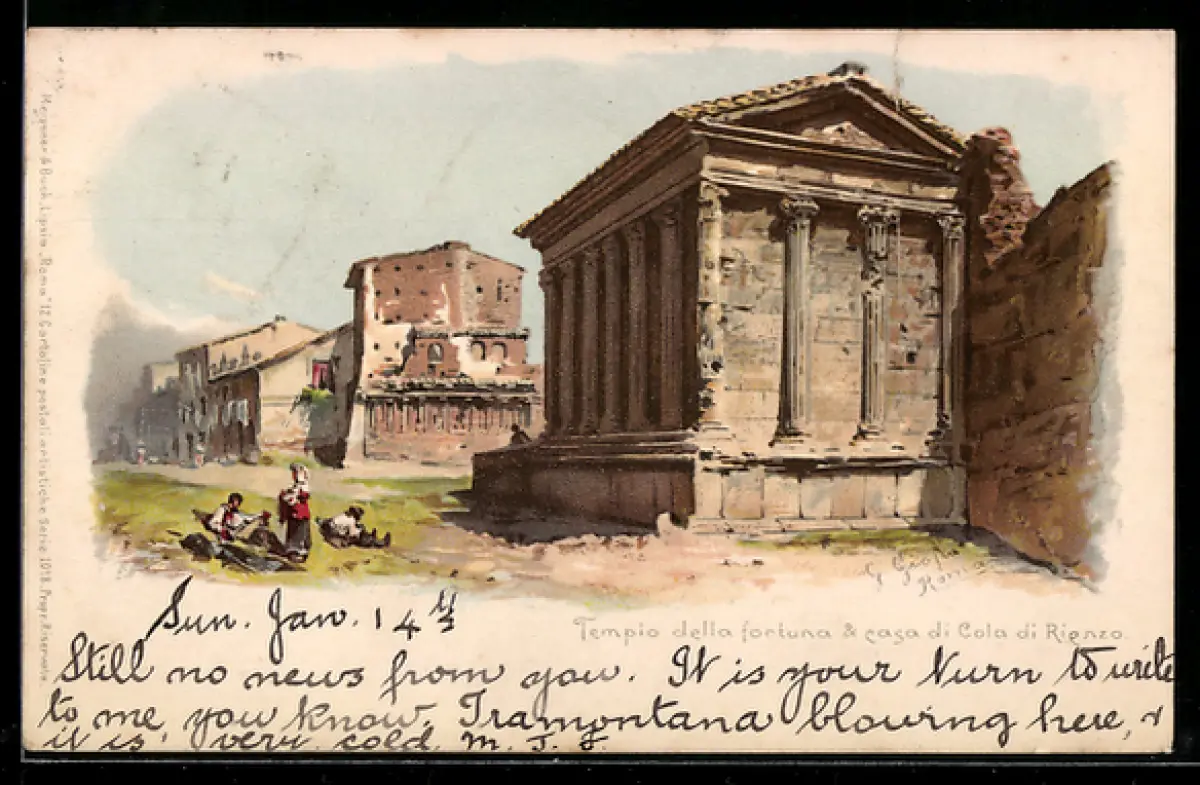 Meissner & Buch, Lipsia „Roma" 12 Cartoline postali artistiche Serie 1018. Propr. Riservata
Roma
Tempio della fortuna & casa di Cola di Rienzo.
Sun. Jan. 14th
Still no news from you. It is your turn to write
to me you know. Tramontana blowing here, &
it is very cold. M. J. F.